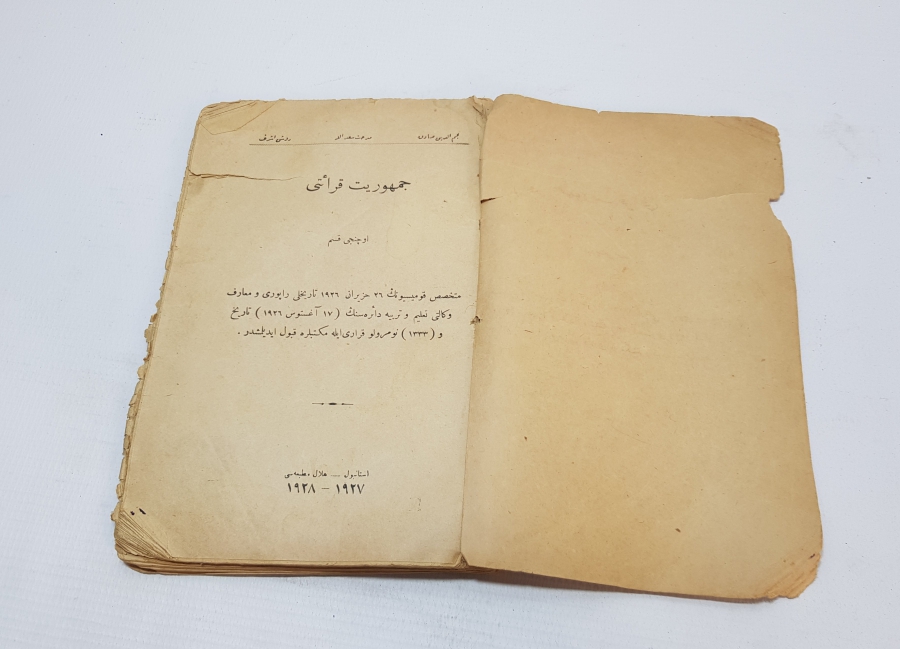 نجم الدین صادق مدحت سعد الله روشن اشرف
جمهوریت قرائتی
اوچنجی قسم
متخصص قومیسیونك ٢٦ حزیران ١٩٢٦ تاریخلی راپوری و معارف
وكالتی تعلیم و تربیه دائره‌سنك ( ١٧ آغستوس ١٩٢٦ ) تاریخ
و ( ١٣٣٣ ) نومرولو قراری‌ایله مكتبلره قبول ایدیلمشدر .
استانبول — هلال مطبعه‌سی
١٩٢٧ – ١٩٢٨